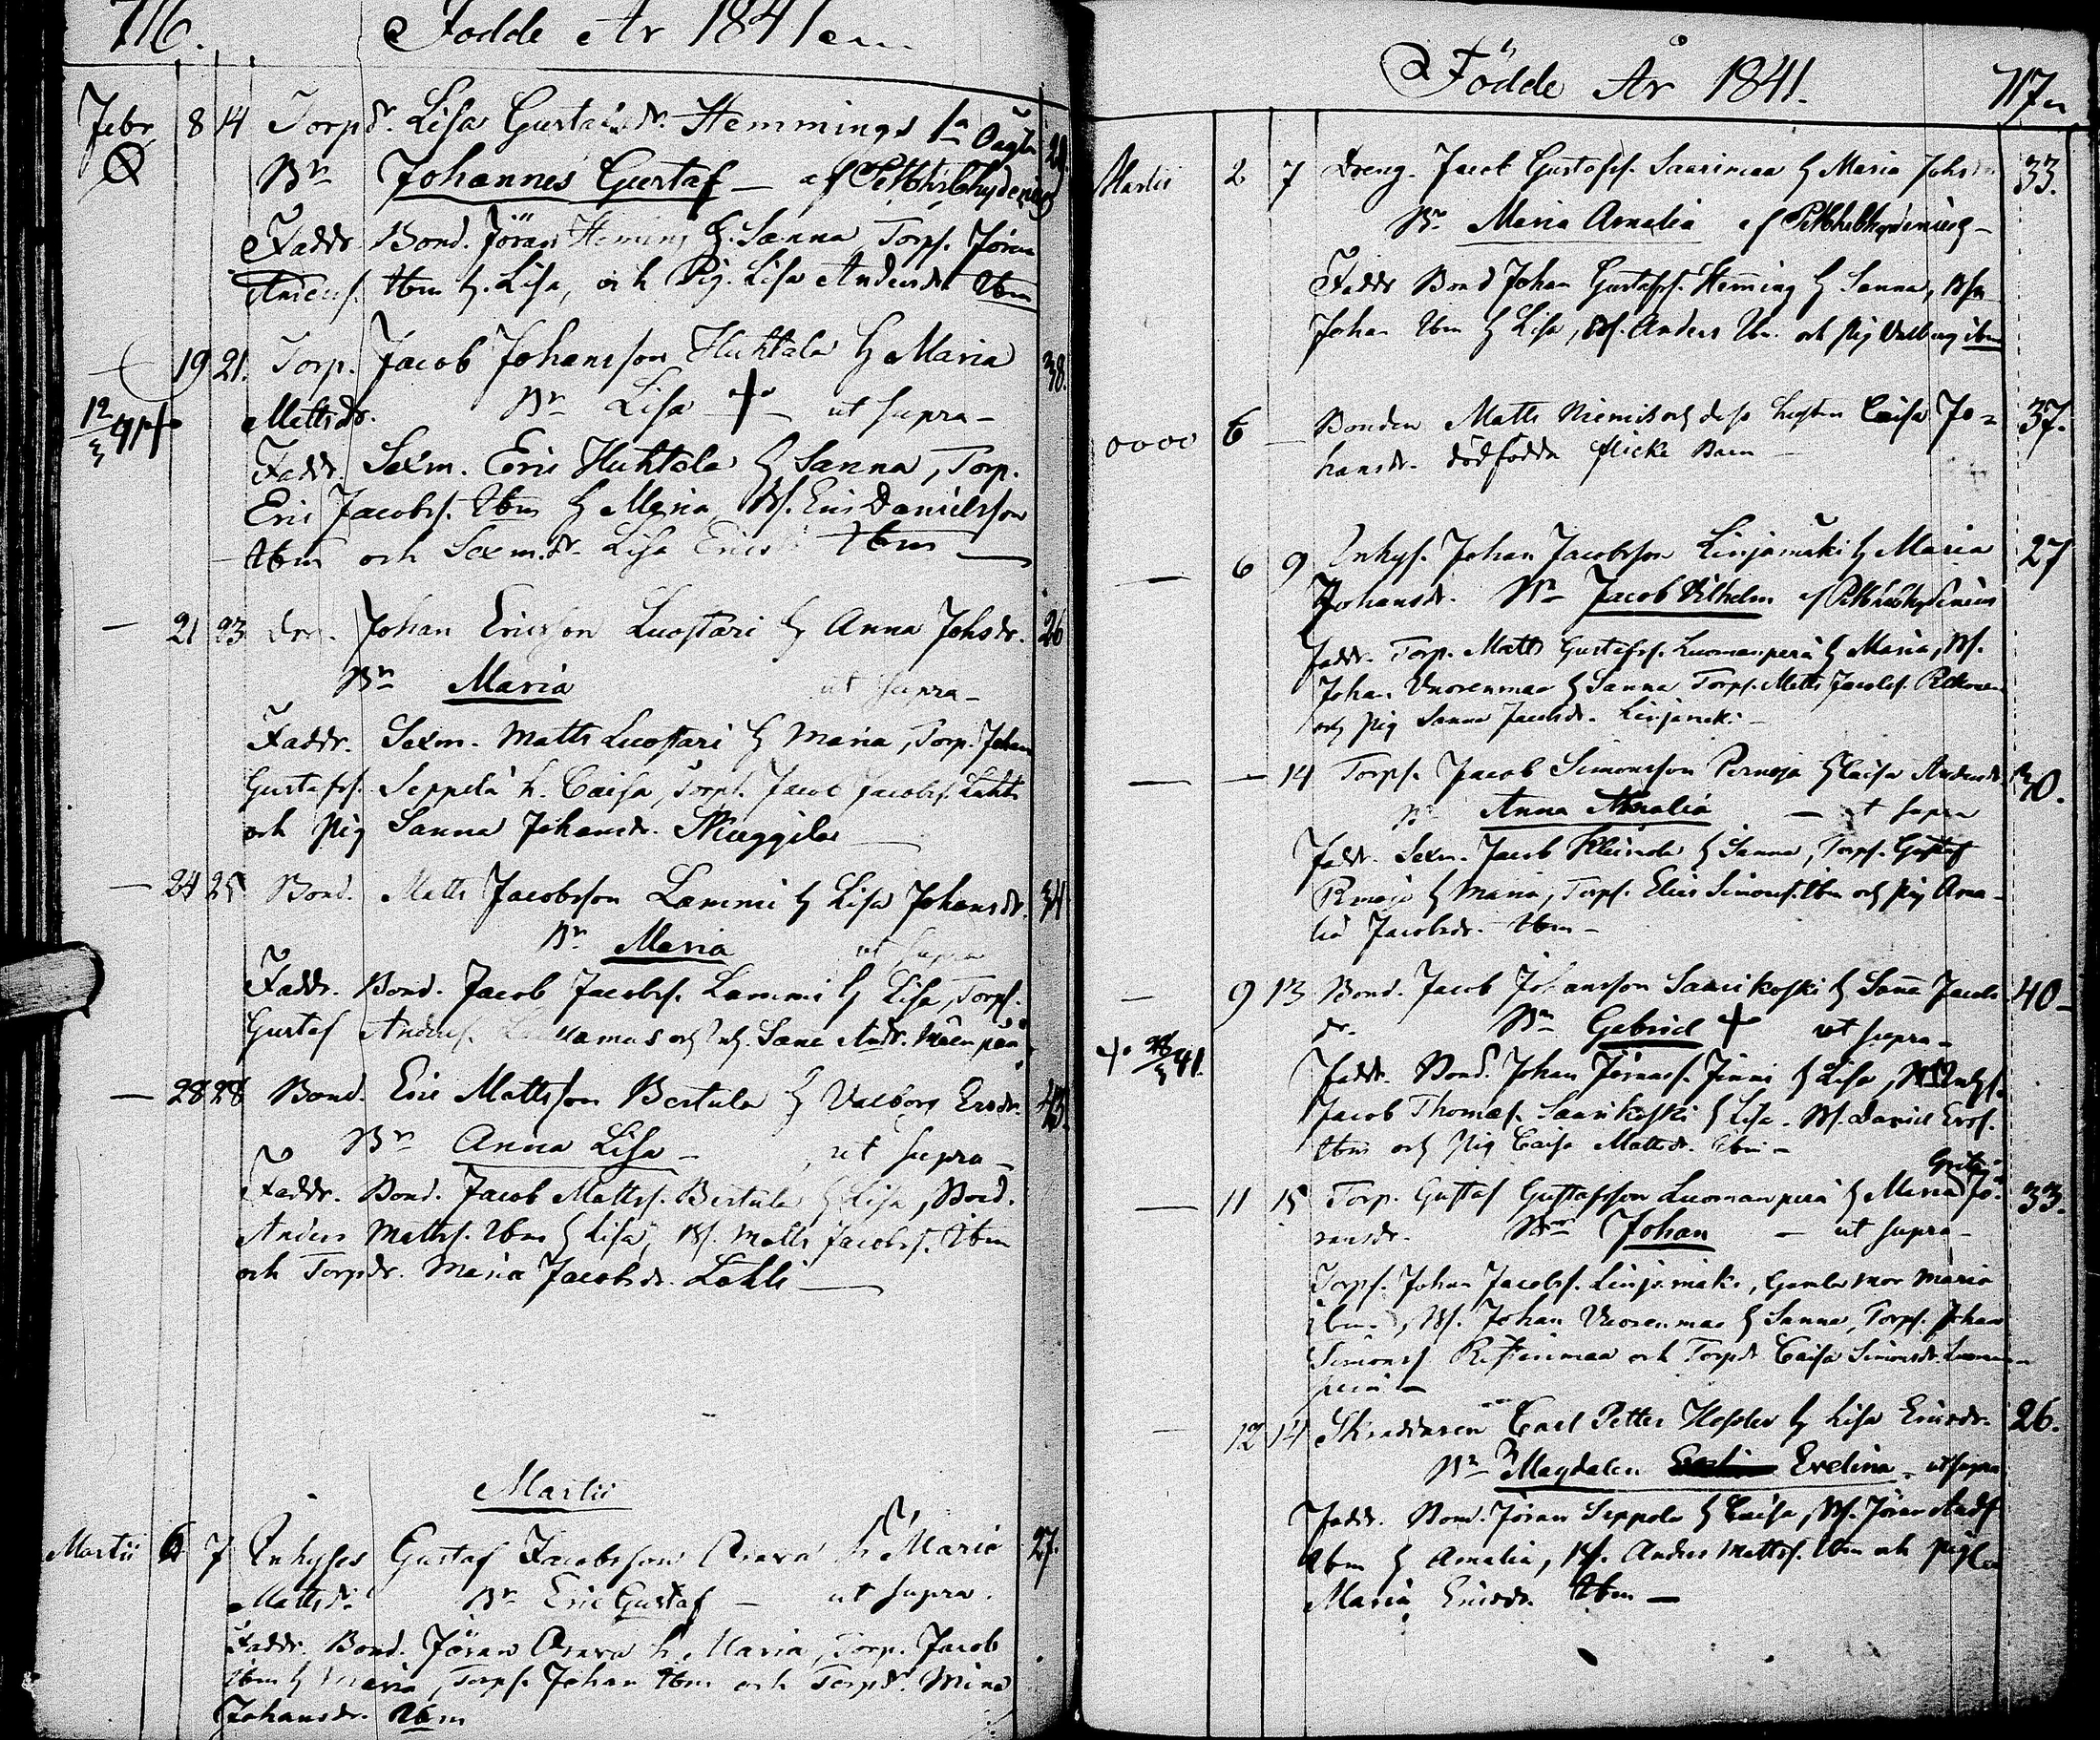 716.
Födde År 1841
Febr. 8 14 Torpdr. Lisa Gustafsdr. Hemmings 1a Oägta
Bn Johannes Gustaf — af
Faddr. Bond. Jöran Heming h. Sanna, Torps. Jöran
Anderss. Ibm h. Lisa, och Pig. Lisa Andersdr Ibm
19 21. Torp. Jacob Johansson Huhtala h Maria 38.
12/3 41 Mattsdr. Bn Lisa + ut supra —
Faddr. Sexm. Eric Huhtala h Sanna, Torp.
Eric Jacobss. Ibm h Maria, Ds. Eric Danielsson
Ibm och Sexm.dr. Lisa Ericsdr Ibm —
— 21 23 Dr. Johan Ericsson Luostari h Anna Johsdr. 26
Bn Maria ut supra —
Faddr. Sexm. Matts Luostari h Maria, Torp. Johan
Gustafss. Seppelä h. Caisa, Torps. Jacob Jacobss. Lahti
och Pig Sanna Johansdr. Skuggila —
— 24 25 Bond. Matts Jacobsson Lammi h Lisa Johansdr. 34
Bn Maria ut supra
Faddr. Bond. Jacob Jacobss. Lammi h Lisa, Torps.
Gustaf Anderss. och Inh. Sana Andr. Mäenpää
— 28 28 Bond. Eric Mattsson Bertula h Valborg Ersdr. 43.
Bn Anna Lisa — ut supra —
Faddr. Bond. Jacob Mattss. Bertula h Lisa, Bond.
Anders Mattss. Ibm h Lisa, Ds. Matts Jacobss. Ibm
och Torpdr. Maria Jacobsdr. Lahti —
Martii
Martii 6 7 Inhyses Gustaf Jacobsson Orava h. Maria 27.
Mattsdr. Bn Eric Gustaf — ut supra.
Faddr. Bond. Jöran Orava h. Maria, Torp. Jacob
Ibm h Maria, Torps. Johan Ibm och Torpdr. Mina
Johansdr. Ibm
Födde År 1841. 717
Martii 2 7 Dreng. Jacob Gustafss. Saarimaa h Maria Johsdr 33.
Bn Maria Amalia af
Faddr Bond Johan Gustafss. Heming h Sanna,
Johan Ibm h Lisa, Ds. Anders Ibm. och Pig Valborg ibm
0000 6 — Bonden Matts Niemis och dess hustru Caisa Jo= 37.
hansdr. dödfödda flicke Barn —
— 6 9 Inhys. Johan Jacobsson Linjamäki h Maria 27
Johansdr. Bn Jacob Vilhelm af
Faddr. Torp. Matts Gustafss. Luomanperä h Maria, Ds.
Johan Vuorenmaa h Sanna Torps. Matts Jacobss.
och Pig Sanna Jacobsdr. Linjamäki —
— — 14 Torps. Jacob Simonsson Pernaja h Caisa Andersdr 30.
Bn Anna Amalia — ut supra
Faddr. Sexm. Jacob h Sanna, Torps. Gustaf
h Maria, Torps. Elias Simonss. Ibm och Pig Ama=
lia Jacobsdr. Ibm —
— 9 13 Bond. Jacob Johansson Saarikoski h Sana Jacobs 40 —
41. dr. Bn Gabriel + ut supra —
Faddr. Bond. Johan Jöranss. Jinni h Lisa, Inhys.
Jacob Thomas. Saarikoski h Lisa. Ds. David Erss.
Ibm och Pig Caisa Mattsdr. Ibm —
Greta
— 11 15 Torp. Gustaf Gustafsson Luomanperä h Maria Jö= 33.
ransdr. Bn Johan — ut supra —
Torps. Johan Jacobss. Linjamäki, Gamla mor Maria
Ibm, Ds. Johan Vuorenmaa h Sanna, Torps. Johan
Simonss. Ristenimaa och Torpdr Caisa Simonsdr. Luoman=
perä —
— 12 14 Skraddaren Carl Petter Hossler h Lisa Ericsdr. 26.
Bn Magdalen Evelina — ut supra
Faddr. Bond. Jöran Seppelä h Caisa, Ds. Jöran Andss
Ibm h Amalia, Ds. Anders Mattss. Ibm och Pig
Maria Ericsdr. Ibm —